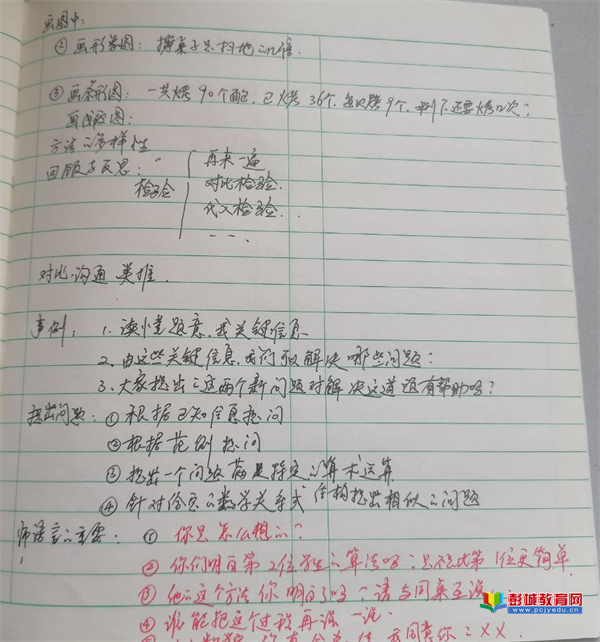 画图中:
② 画形象图: 擦桌子只扫地的几倍.
③ 画条形图: 一共烤90个面包,已烤36个,每次烤9个,剩下还要烤几次?
画线段图:
方法的多样性
回顾与反思:
检验
再来一遍
对比检验.
代入检验.
....
对比,沟通 类推.
事例: 1. 读懂题意,找关键信息.
2. 由这些关键信息,我们可以解决哪些问题?
3. 大家提出的这两个新问题对解决这道题有帮助吗?
提出问题: ① 根据已知信息提问
② 根据范例提问
③ 提出一个问题满足特定的算术运算
④ 针对给定的数学关系式结构提出相似的问题
师语言的重要: ① 你是怎么想的?
② 你们明白第2位学生的算法吗?是不是比第1位更简单.
③ 他的这个方法你明白了吗?请与同桌互说
④ 谁能把这个过程再说一说.
彭城教育网
www.pcjyedu.cn